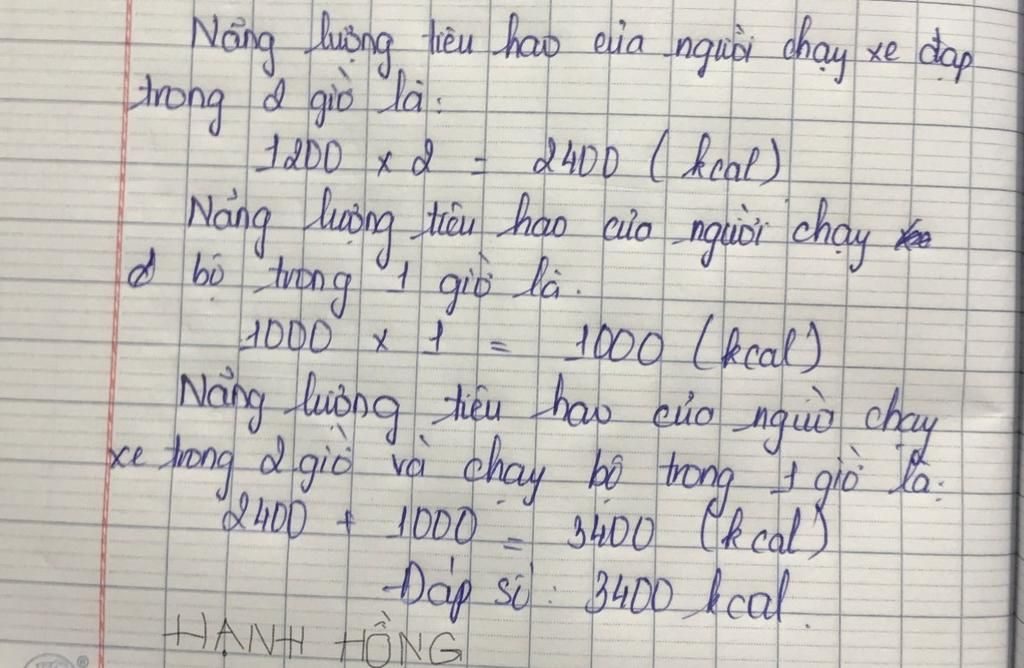 Năng lượng tiêu hao của người chạy xe đạp
trong 2 giờ là:
1200 x 2 = 2400 (kcal)
Năng lượng tiêu hao của người chạy
bộ trong 1 giờ là.
1000 x 1 = 1000 (kcal)
Năng lượng tiêu hao của người chạy
xe trong 2 giờ và chạy bộ trong 1 giờ là:
2400 + 1000 = 3400 (kcal)
Đáp số: 3400 kcal.
HẠNH HỒNG